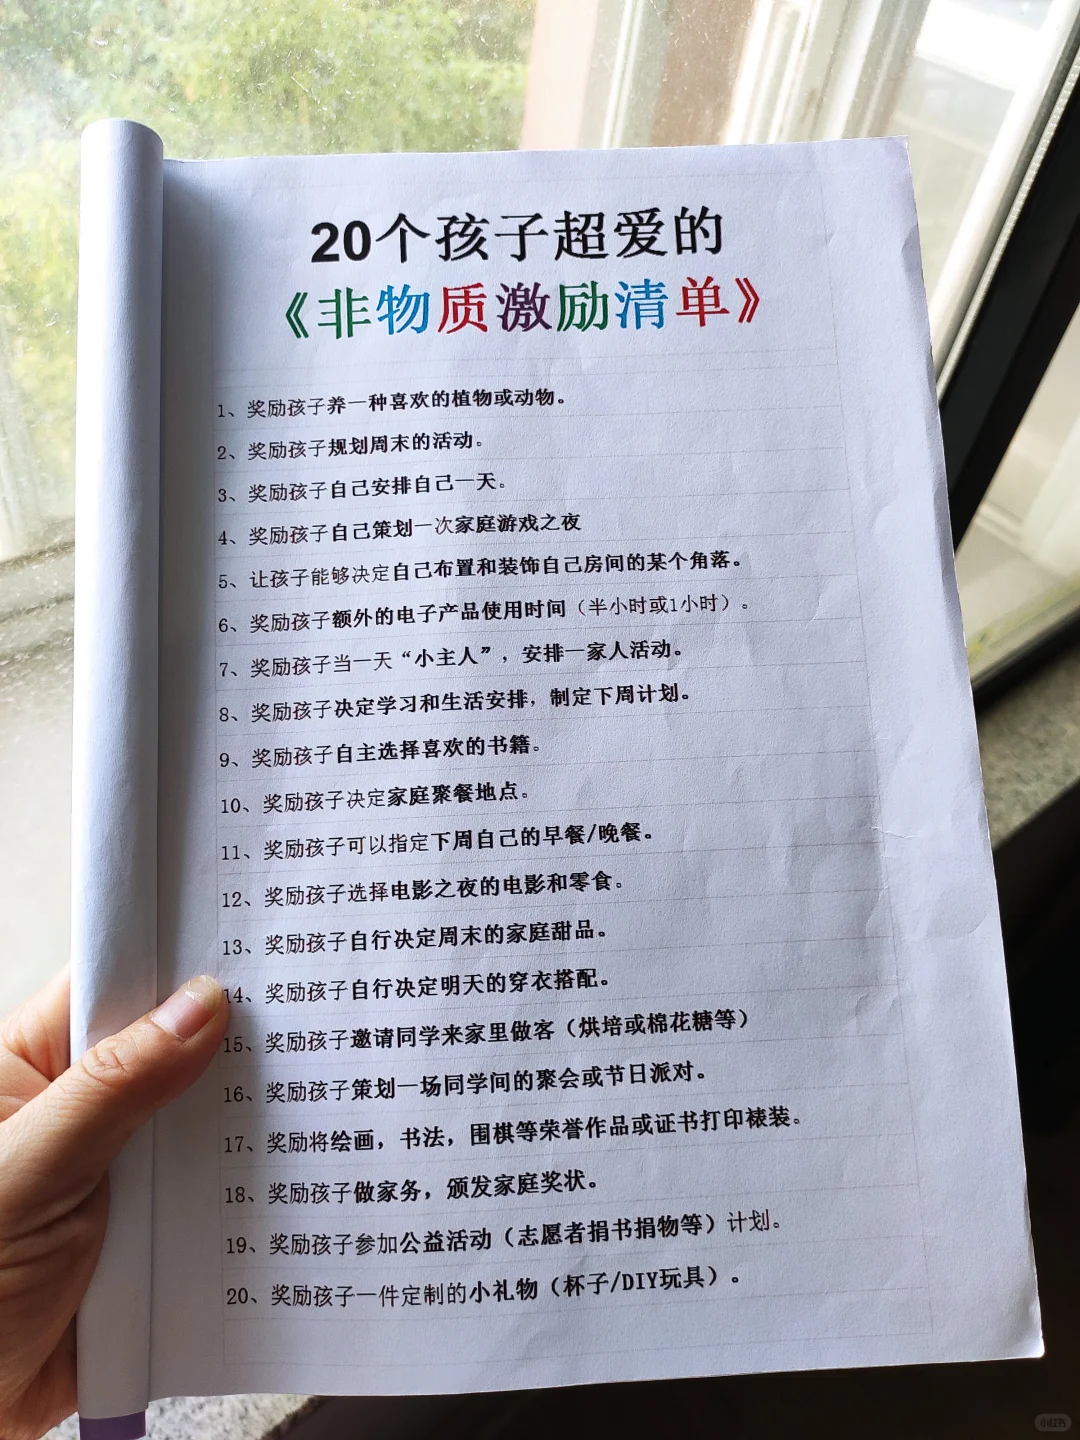 20个孩子超爱的
《非物质激励清单》
1、奖励孩子养一种喜欢的植物或动物。
2、奖励孩子规划周末的活动。
3、奖励孩子自己安排自己一天。
4、奖励孩子自己策划一次家庭游戏之夜
5、让孩子能够决定自己布置和装饰自己房间的某个角落。
6、奖励孩子额外的电子产品使用时间（半小时或1小时）。
7、奖励孩子当一天“小主人”，安排一家人活动。
8、奖励孩子决定学习和生活安排，制定下周计划。
9、奖励孩子自主选择喜欢的书籍。
10、奖励孩子决定家庭聚餐地点。
11、奖励孩子可以指定下周自己的早餐/晚餐。
12、奖励孩子选择电影之夜的电影和零食。
13、奖励孩子自行决定周末的家庭甜品。
14、奖励孩子自行决定明天的穿衣搭配。
15、奖励孩子邀请同学来家里做客（烘培或棉花糖等）
16、奖励孩子策划一场同学间的聚会或节日派对。
17、奖励将绘画，书法，围棋等荣誉作品或证书打印裱装。
18、奖励孩子做家务，颁发家庭奖状。
19、奖励孩子参加公益活动（志愿者捐书捐物等）计划。
20、奖励孩子一件定制的小礼物（杯子/DIY玩具）。
小红书